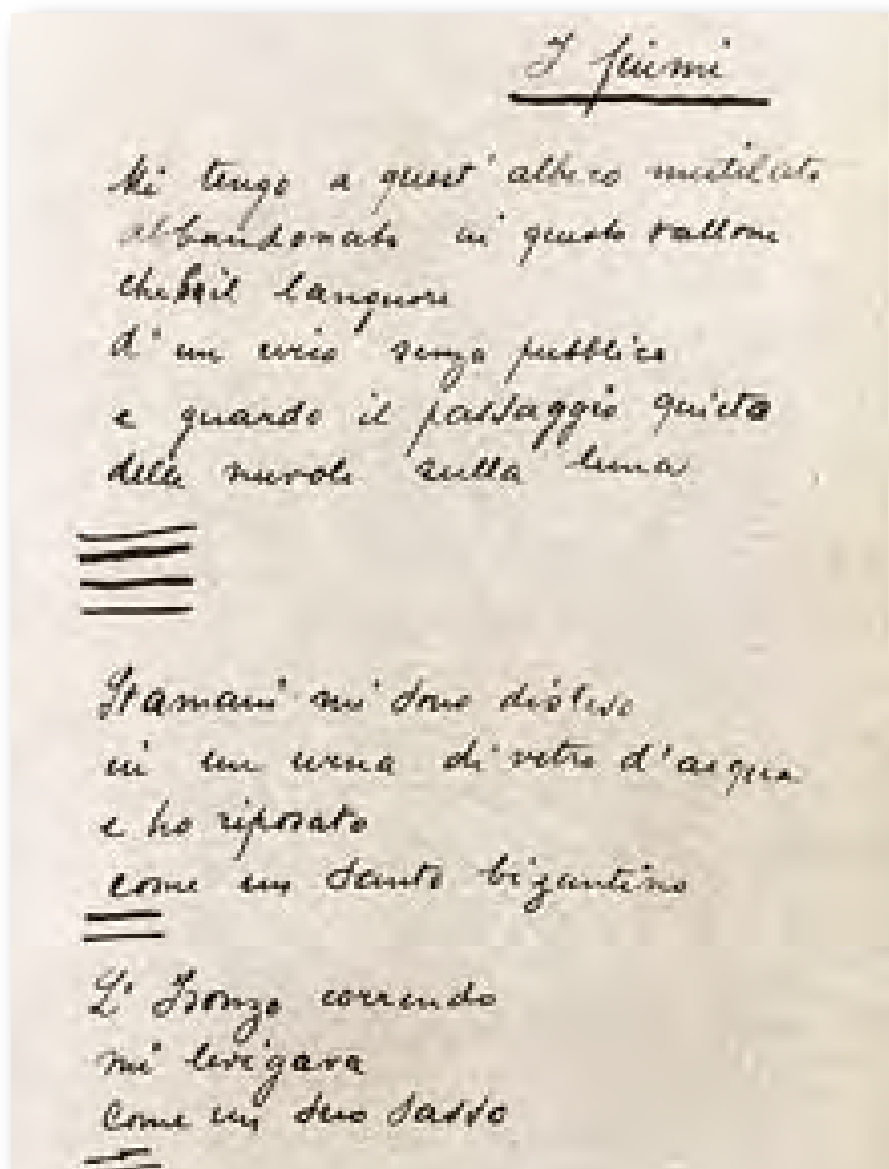 I fiumi
Mi tengo a quest' albero mutilato
abbandonato in questo vallone
che ha il languore
d' un circo senza pubblico
e guardo il passaggio quieto
delle nuvole sulla luna
Stamani mi sono disteso
in un urna di vetro d'acqua
e ho riposato
come un santo bizantino
L' Isonzo correndo
mi levigava
come un suo sasso